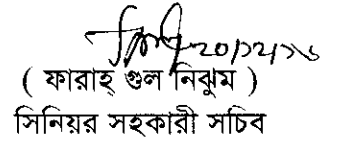 ( ফারাহ্ গুল নিঝুম )
সিনিয়র সহকারী সচিব